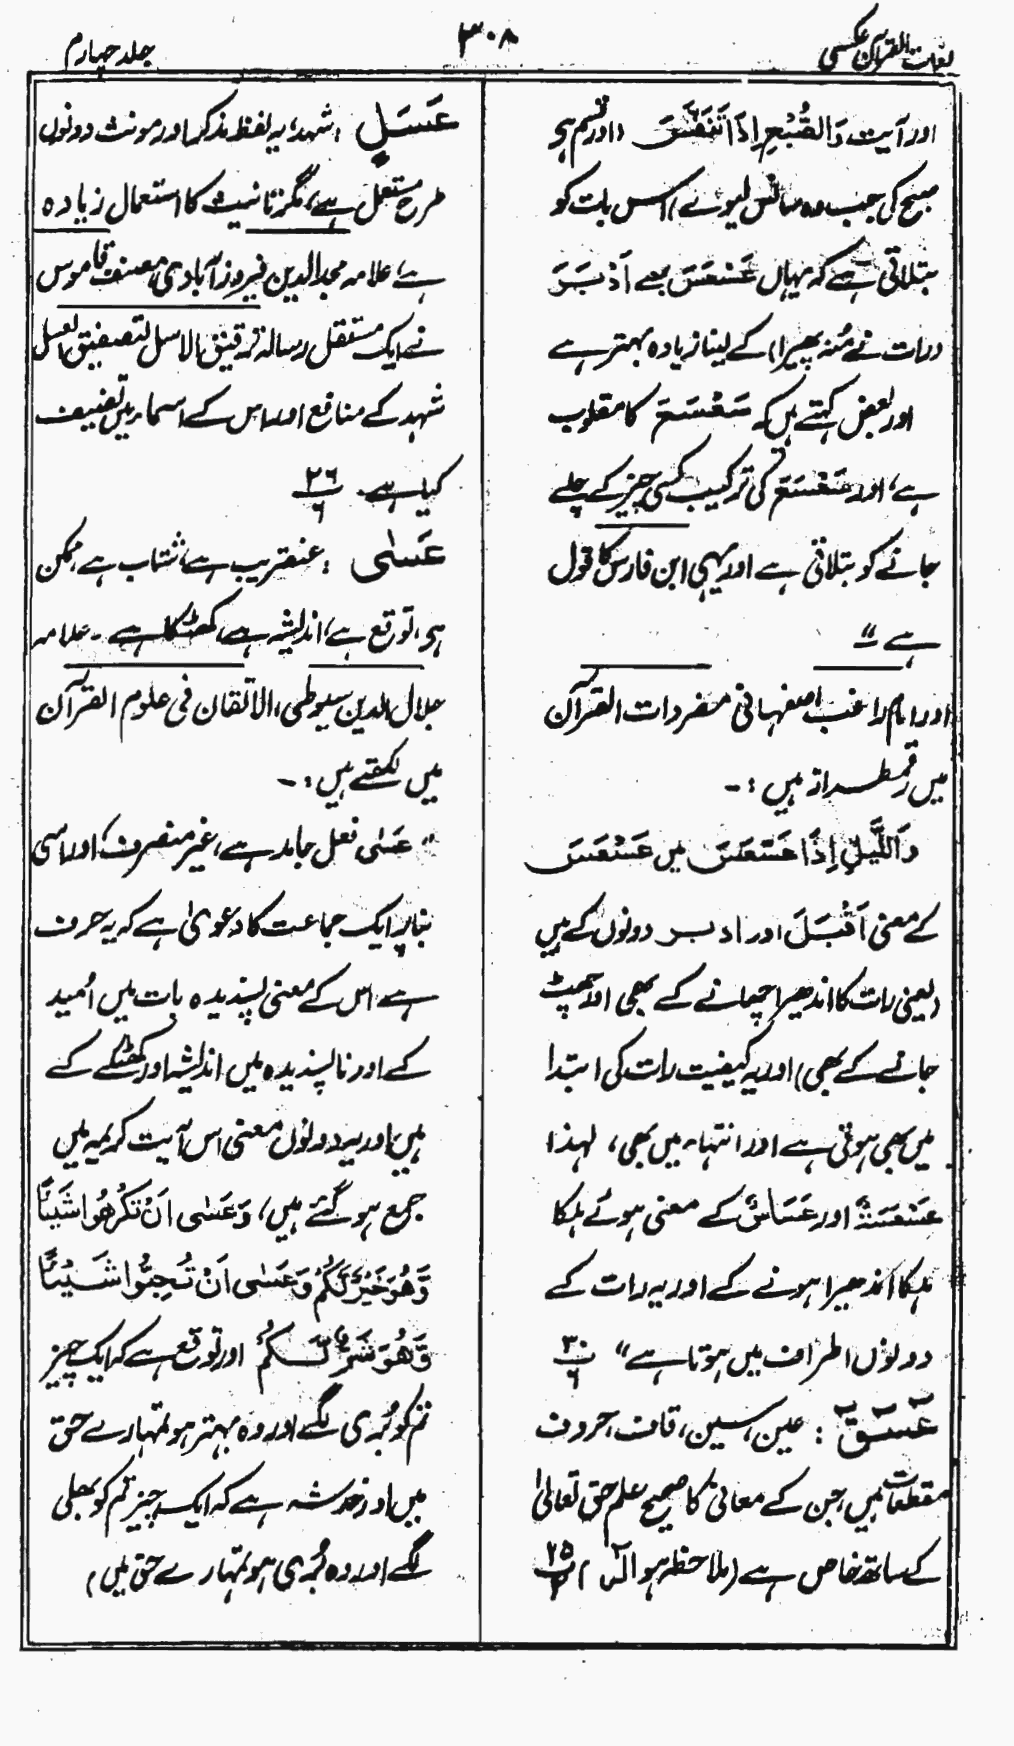 لغات القرآن عکسی
۳۰۸
جلد چہارم
اور آیت وَالصُّبْحِ اِذَا تَنَفَّسَ (اور قسم ہی
صبح کی جب وہ سانس لیوے) اس بات کو
بتلاتی ہے کہ یہاں عَسْعَسَ سے اَدْبَرَ
(رات نے مُنہ پھیرا) کے لینا زیادہ بہتر ہے
اور بعض کہتے ہیں کہ سَعْسَعَ کا مقلوب
ہے، اور سَعْسَعَ کی ترکیب کسی چیز کے چلے
جانے کو بتلاتی ہے اور یہی ابن فارس کا قول
ہے"
اور امام راغب اصفہانی مفردات القرآن
میں رقمطراز ہیں :-
وَاللَّیْلِ اِذَا عَسْعَسَ میں عَسْعَسَ
کے معنی اَقْبَلَ اور ادبر دونوں کے ہیں
(یعنی رات کا اندھیرا چھانے کے بھی اور چھٹ
جانے کے بھی) اور یہ کیفیت رات کی ابتدا
میں بھی ہوتی ہے اور انتہاء میں بھی، لہذا
عَسْعَسَۃٌ اور عَسَاسٌ کے معنی ہوئے ہلکا
ہلکا اندھیرا ہونے کے اور یہ رات کے
دونوں اطراف میں ہوتا ہے" ۳۰/۶
عٓسٓقٓ : عین، سین، قاف، حروف
مقطعات ہیں جن کے معانی کا صحیح علم حق تعالیٰ
کے ساتھ خاص ہے (ملاحظہ ہو الٓمٓ) ۲۵/۲
عَسَلٍ ، شہد، یہ لفظ مذکر اور مونث دونوں
طرح مستعمل ہے، مگر تانیث کا استعمال زیادہ
ہے، علامہ مجدالدین فیروزآبادی مصنف قاموس
نے ایک مستقل رسالہ ترقیق الاسل لتصفیق العسل
شہد کے منافع اور اس کے اسماء میں تصنیف
کیا ہے۔ ۲۶/۶
عَسٰی : عنقریب ہے، شتاب ہے، ممکن
ہی، توقع ہے، اندیشہ ہے، کھٹکا ہے۔ علامہ
جلال الدین سیوطی، الاتقان فی علوم القرآن
میں لکھتے ہیں :-
"عَسٰی فعل جامد ہے، غیر منصرف، اور اسی
بنا پر ایک جماعت کا دعویٰ ہے کہ یہ حرف
ہے، اس کے معنی پسندیدہ بات میں اُمید
کے اور ناپسندیدہ میں اندیشہ اور کھٹکے کے
ہیں، اور یہ دونوں معنی اس آیت کریمہ میں
جمع ہو گئے ہیں، وَعَسٰی اَنْ تَکْرَھُوْا شَیْئًا
وَّھُوَ خَیْرٌ لَّکُمْ وَعَسٰی اَنْ تُحِبُّوْا شَیْئًا
وَّھُوَ شَرٌّ لَّکُمْ اور توقع ہے کہ ایک چیز
تم کو بُری لگے اور وہ بہتر ہو تمہارے حق
میں اور خدشہ ہے کہ ایک چیز تم کو بھلی
لگے اور وہ بُری ہو تمہارے حق میں)